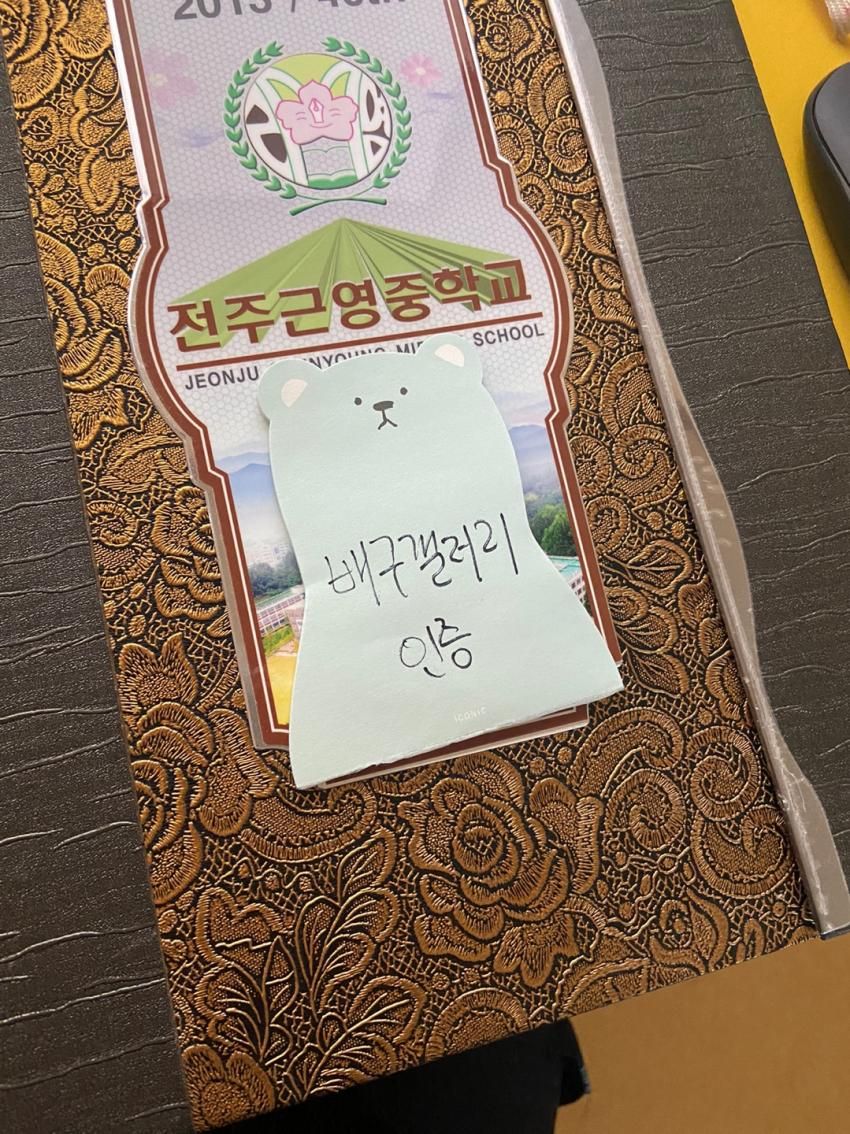 2013 /
전주근영중학교
JEONJU SCHOOL
배구갤러리
인증
ICONIC